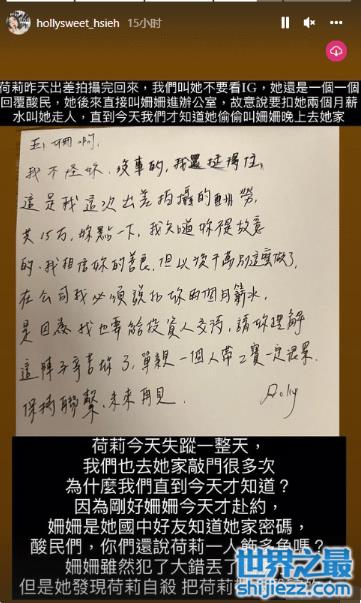 hollysweet_hsieh 15小时
荷莉昨天出差拍攝完回來，我們叫她不要看IG，她還是一個一個
回覆酸民，她後來直接叫姍姍進辦公室，故意說要扣她兩個月薪
水叫她走人，直到今天我們才知道她偷偷叫姍姍晚上去她家
玉姍啊，
我不怪妳，沒事的，我還挺得住，
這是我這次出差拍攝的酬勞，
共15万，妳點一下，我知道妳從故意
的，我相信妳的善良，但以後千萬別這麼做了，
在公司我必須說扣妳的個月薪水，
是因為我也要給投資人交待，請妳理解
這陣子辛苦妳了，單親一個人帶2寶一定很累
保持聯繫，未來再見.
Holly
荷莉今天失蹤一整天，
我們也去她家敲門很多次
為什麼我們直到今天才知道？
因為剛好姍姍今天才赴約，
姍姍是她國中好友知道她家密碼，
酸民們，你們還說荷莉一人飾多角嗎？
姍姍雖然犯了大錯丟了
但是她發現荷莉自殺 把荷莉
世界之最
shijiezz.com